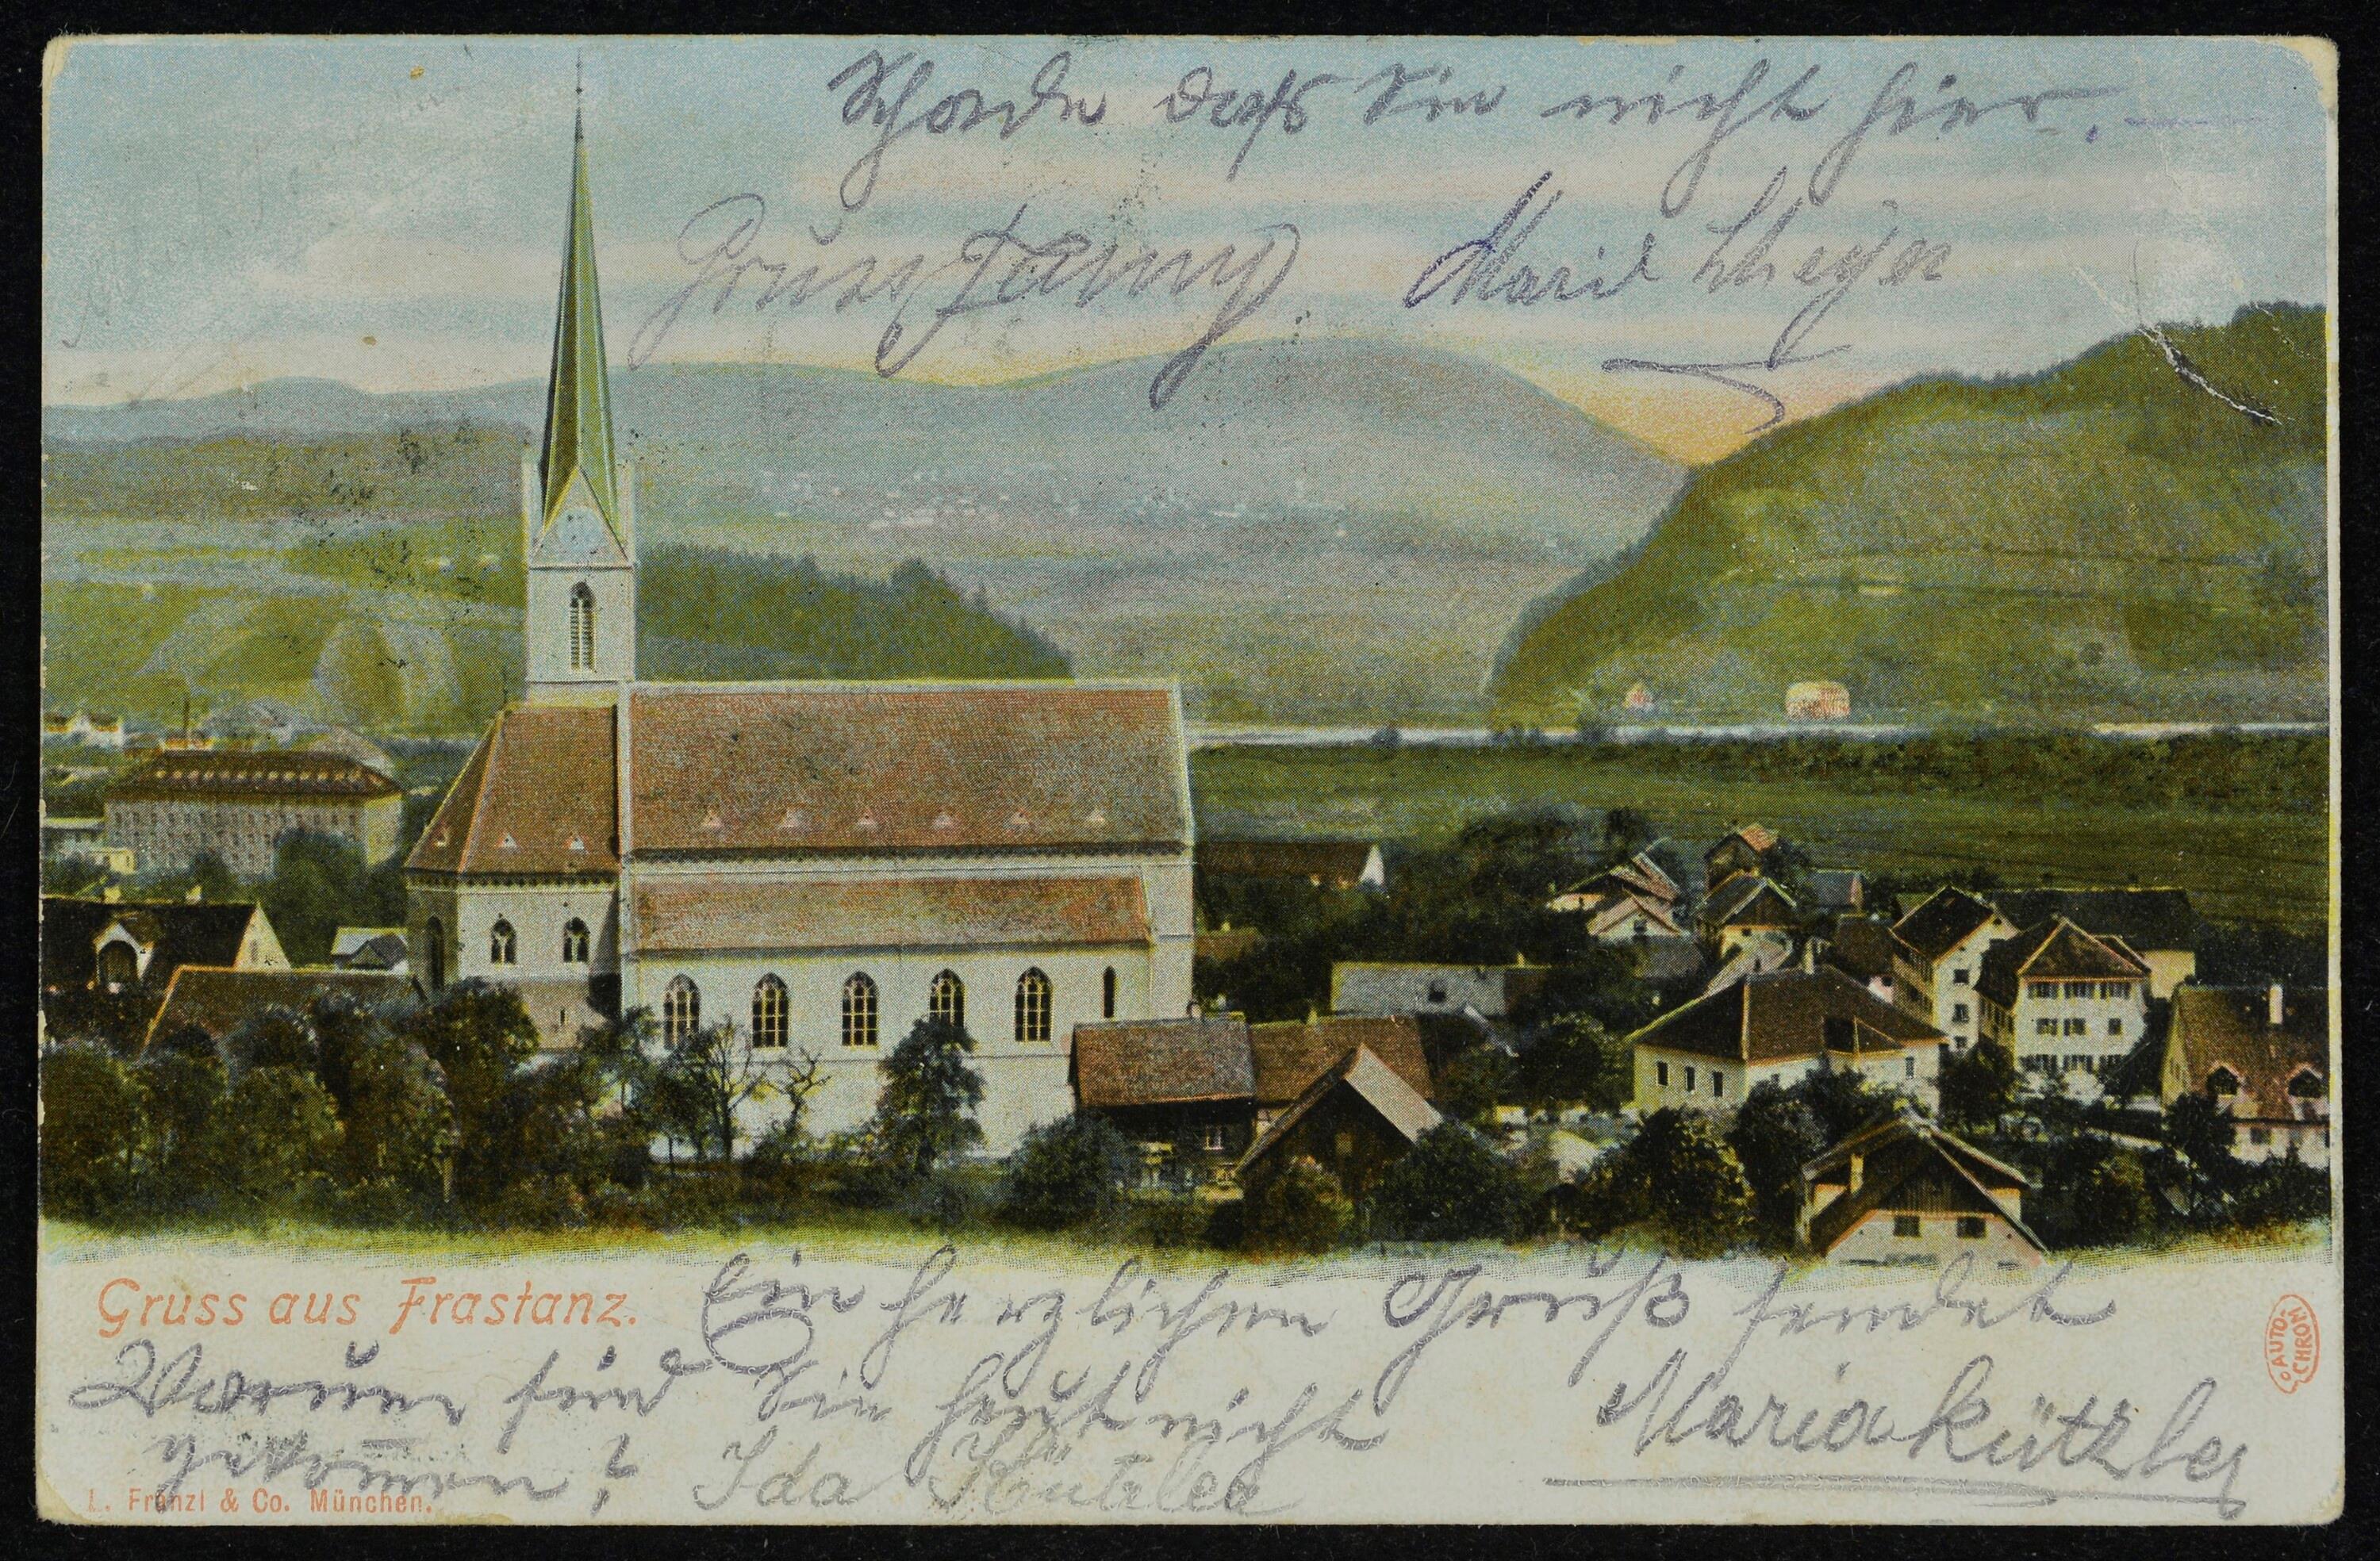 Schade daß Sie nicht hier.
Gruss Fanny Marie
Gruss aus Frastanz.
Ein herzlichen Gruß sendet
Maria Kützler
Warum sind Sie heut nicht
gekom̄en?
Ida Kützler
L. Fränzl & Co. München.
AUTO-
CHROM